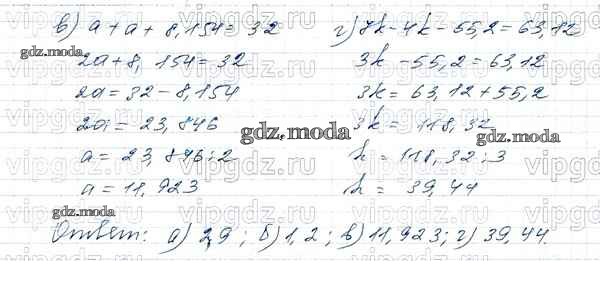 в) a + a + 8,154 = 32
2a + 8,154 = 32
2a = 32 - 8,154
2a = 23,846
a = 23,846 : 2
a = 11,923
г) 7k - 4k - 55,2 = 63,12
3k - 55,2 = 63,12
3k = 63,12 + 55,2
3k = 118,32
k = 118,32 : 3
k = 39,44
Ответ: а) 2,9; б) 1,2; в) 11,923; г) 39,44.
gdz.moda
gdz.moda
gdz.moda
gdz.moda
gdz.moda